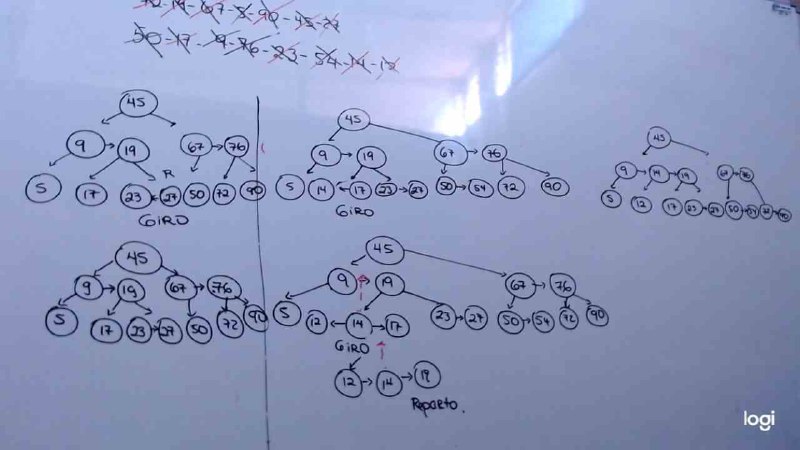 72-14-67-5-90-45-27
50-17-9-76-23-54-14-12
45
9 19 67 76
R
5 17 23 27 50 72 90
GIRO
45
9 19 67 76
5 14 17 23 27 50 54 72 90
GIRO
45
9 14 19 67 76
5 12 17 23 27 50 54 72 90
45
9 19 67 76
5 17 23 27 50 72 90
45
9 19 67 76
5 12 14 17 23 27 50 54 72 90
GIRO
12 14 19
Reparto.
logi